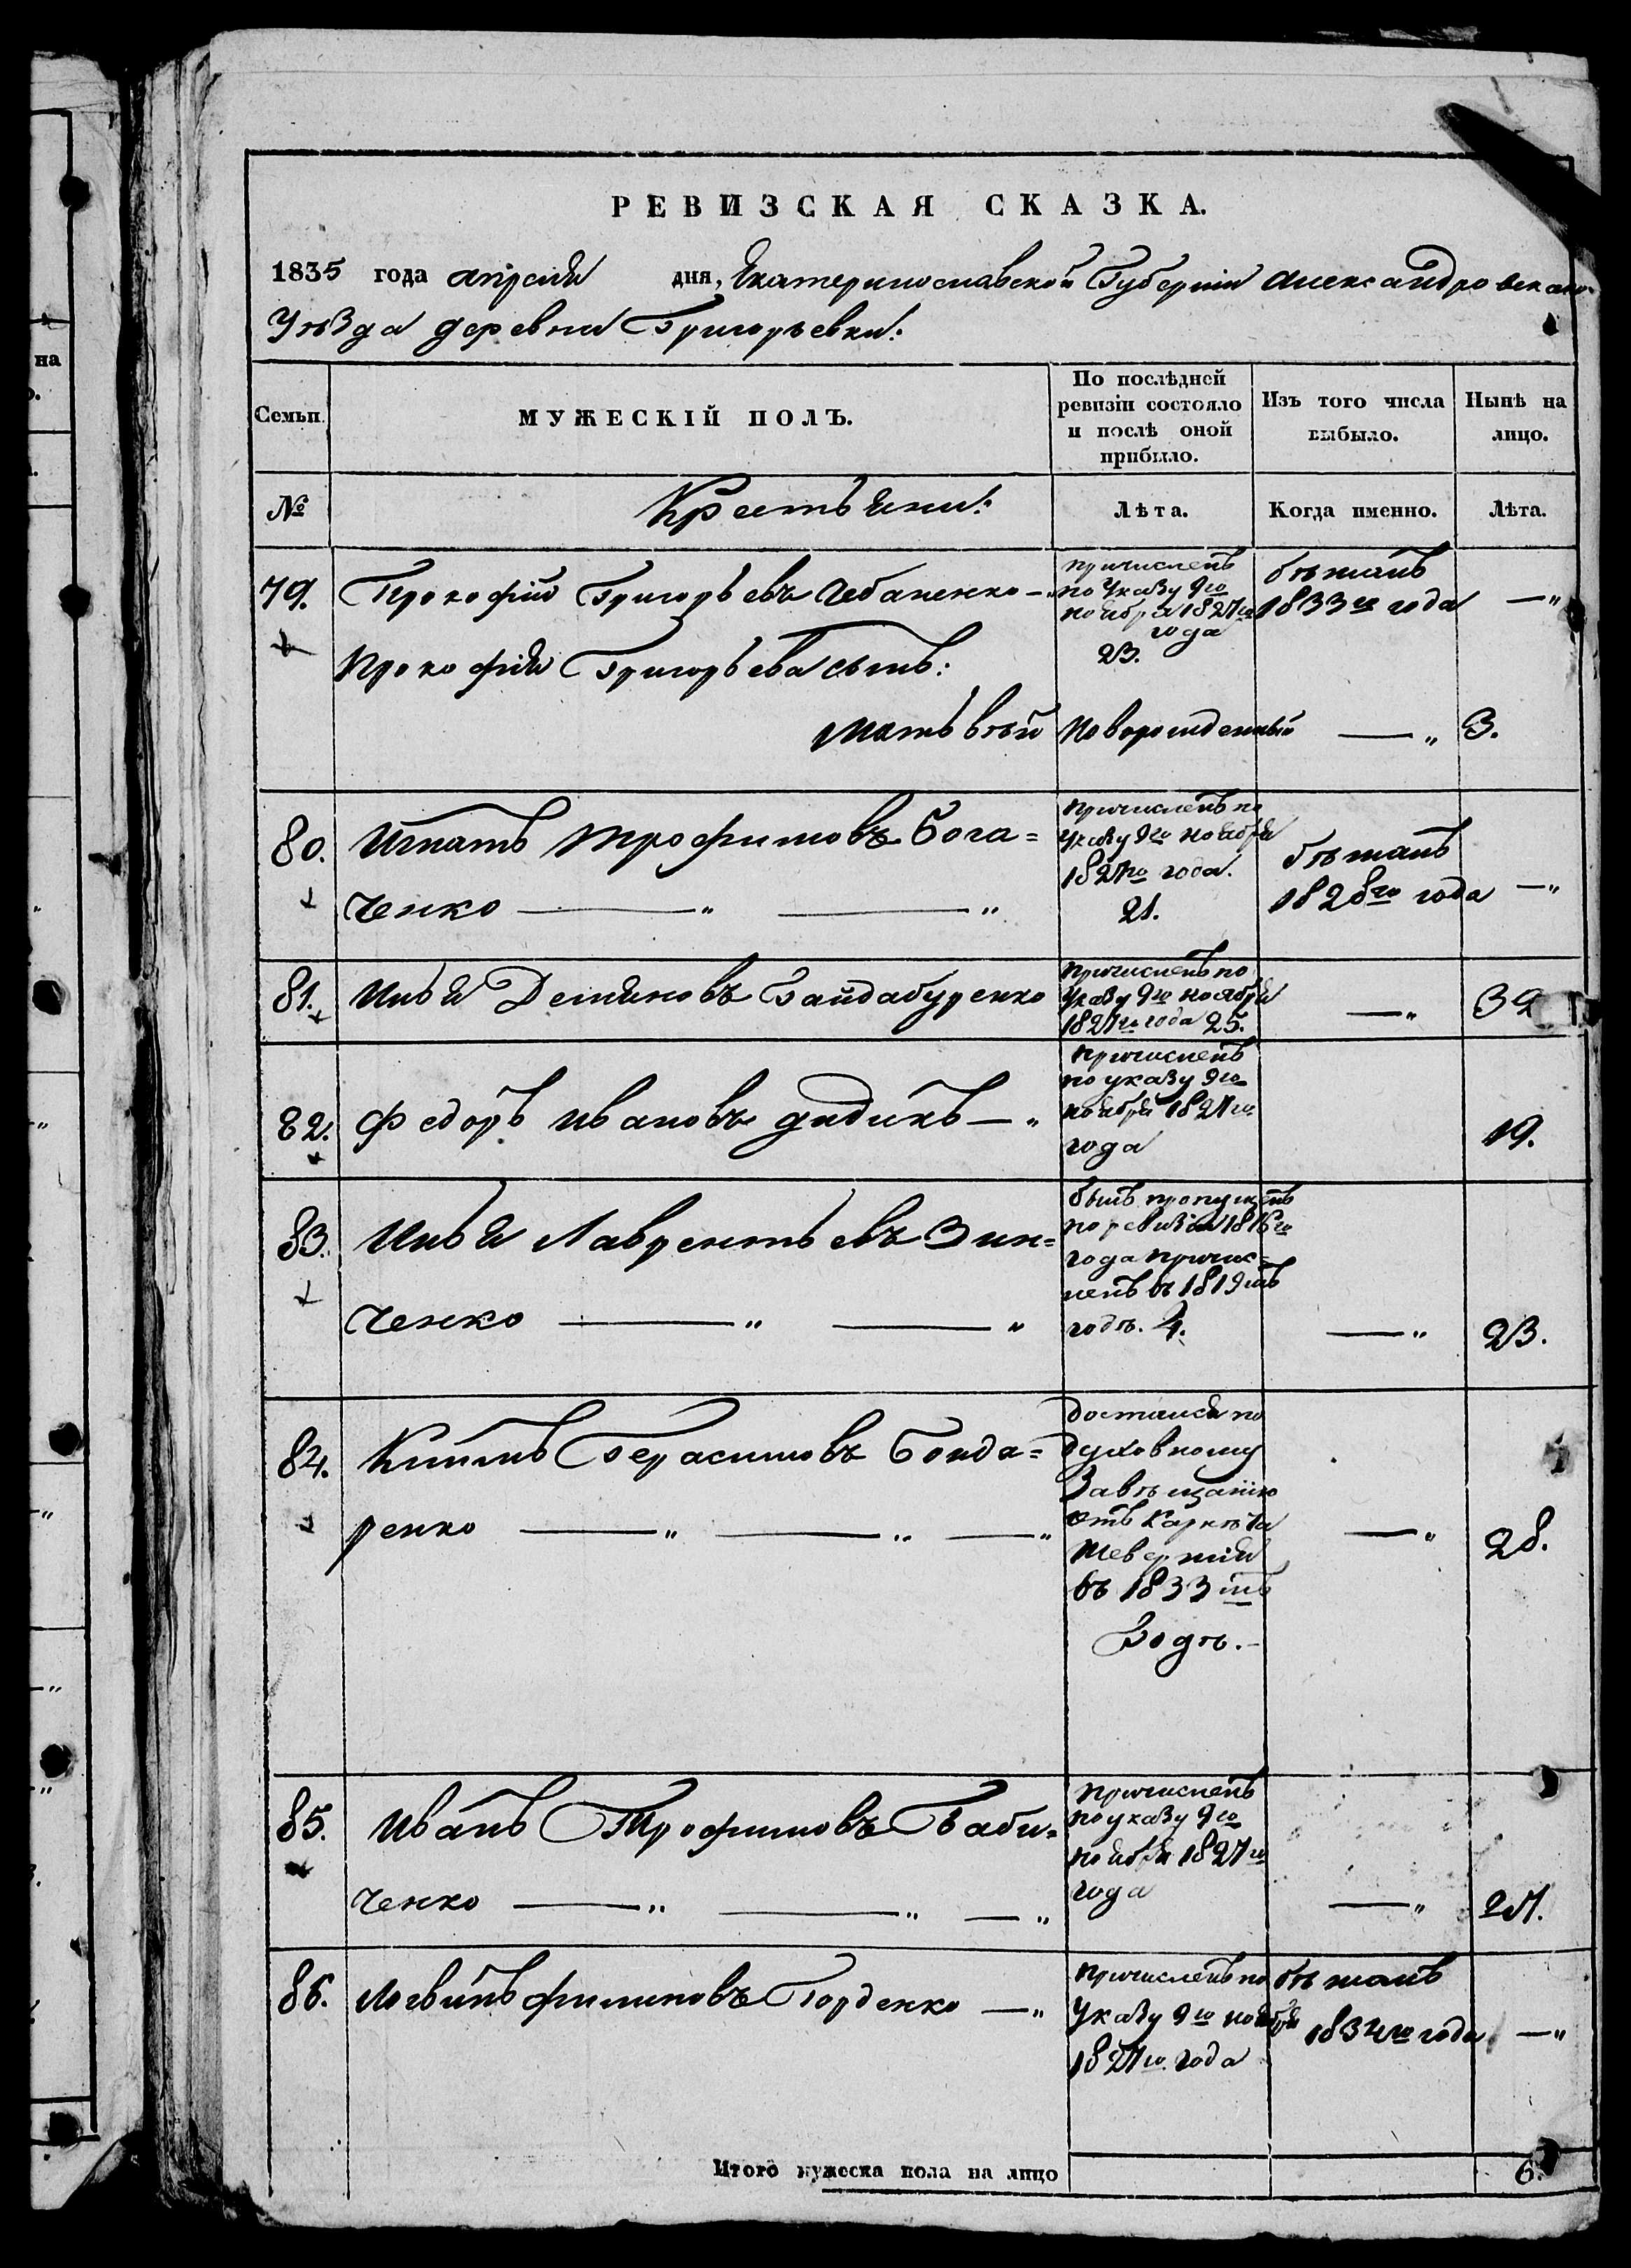 РЕВИЗСКАЯ СКАЗКА.
1835 года апреля дня, Екатеринославской Губерніи Александровскаго
Уѣзда деревни Григорьевки:
Семьи. МУЖЕСКІЙ ПОЛЪ. По послѣдней ревизіи состояло и послѣ оной прибыло. Изъ того числа выбыло. Нынѣ на лицо.
№ Крестьяни: Лѣта. Когда именно. Лѣта.
79. Прокофій Григорьевъ Чебаненко —„
причисленъ
по Указу 9го
ноября 1827го
года
23.
бѣжалъ
1833го года
—„
Прокофія Григорьева сынъ:
Матьвѣй Новорожденный —„ 3.
80. Игнатъ Трофимовъ Бога=
ченко —„ —„
причисленъ по
Указу 9го ноября
1827го года.
21.
бѣжалъ
1828го года
—„
81. Илья Демяновъ Гайдабуренко
причисленъ по
Указу 9го ноября
1827го года 25.
—„
82. Федоръ Ивановъ Дидикъ —„
причисленъ
по указу 9го
ноября 1827го
года
19.
83. Илья Лаврентьевъ Зин=
ченко —„ —„
былъ пропущенъ
по ревизіи 1816го
года причис=
ленъ въ 1819мъ
годѣ. 4.
—„ 23.
84. Климъ Герасимовъ Бонда=
ренко —„ —„ —„
Достался по
Духовному
Завѣщанію
отъ
въ 1833мъ
Годѣ.—
—„ 28.
85. Иванъ Трофимовъ Баби=
ченко —„ —„ —„
причисленъ
по указу 9го
ноября 1827го
года
—„ 27.
86. Логвинъ Филиповъ Горденко —„
причисленъ по
Указу 9го ноября
1827го года
бѣжалъ
1834го года
—„
Итого мужеска пола на лицо 6.
на